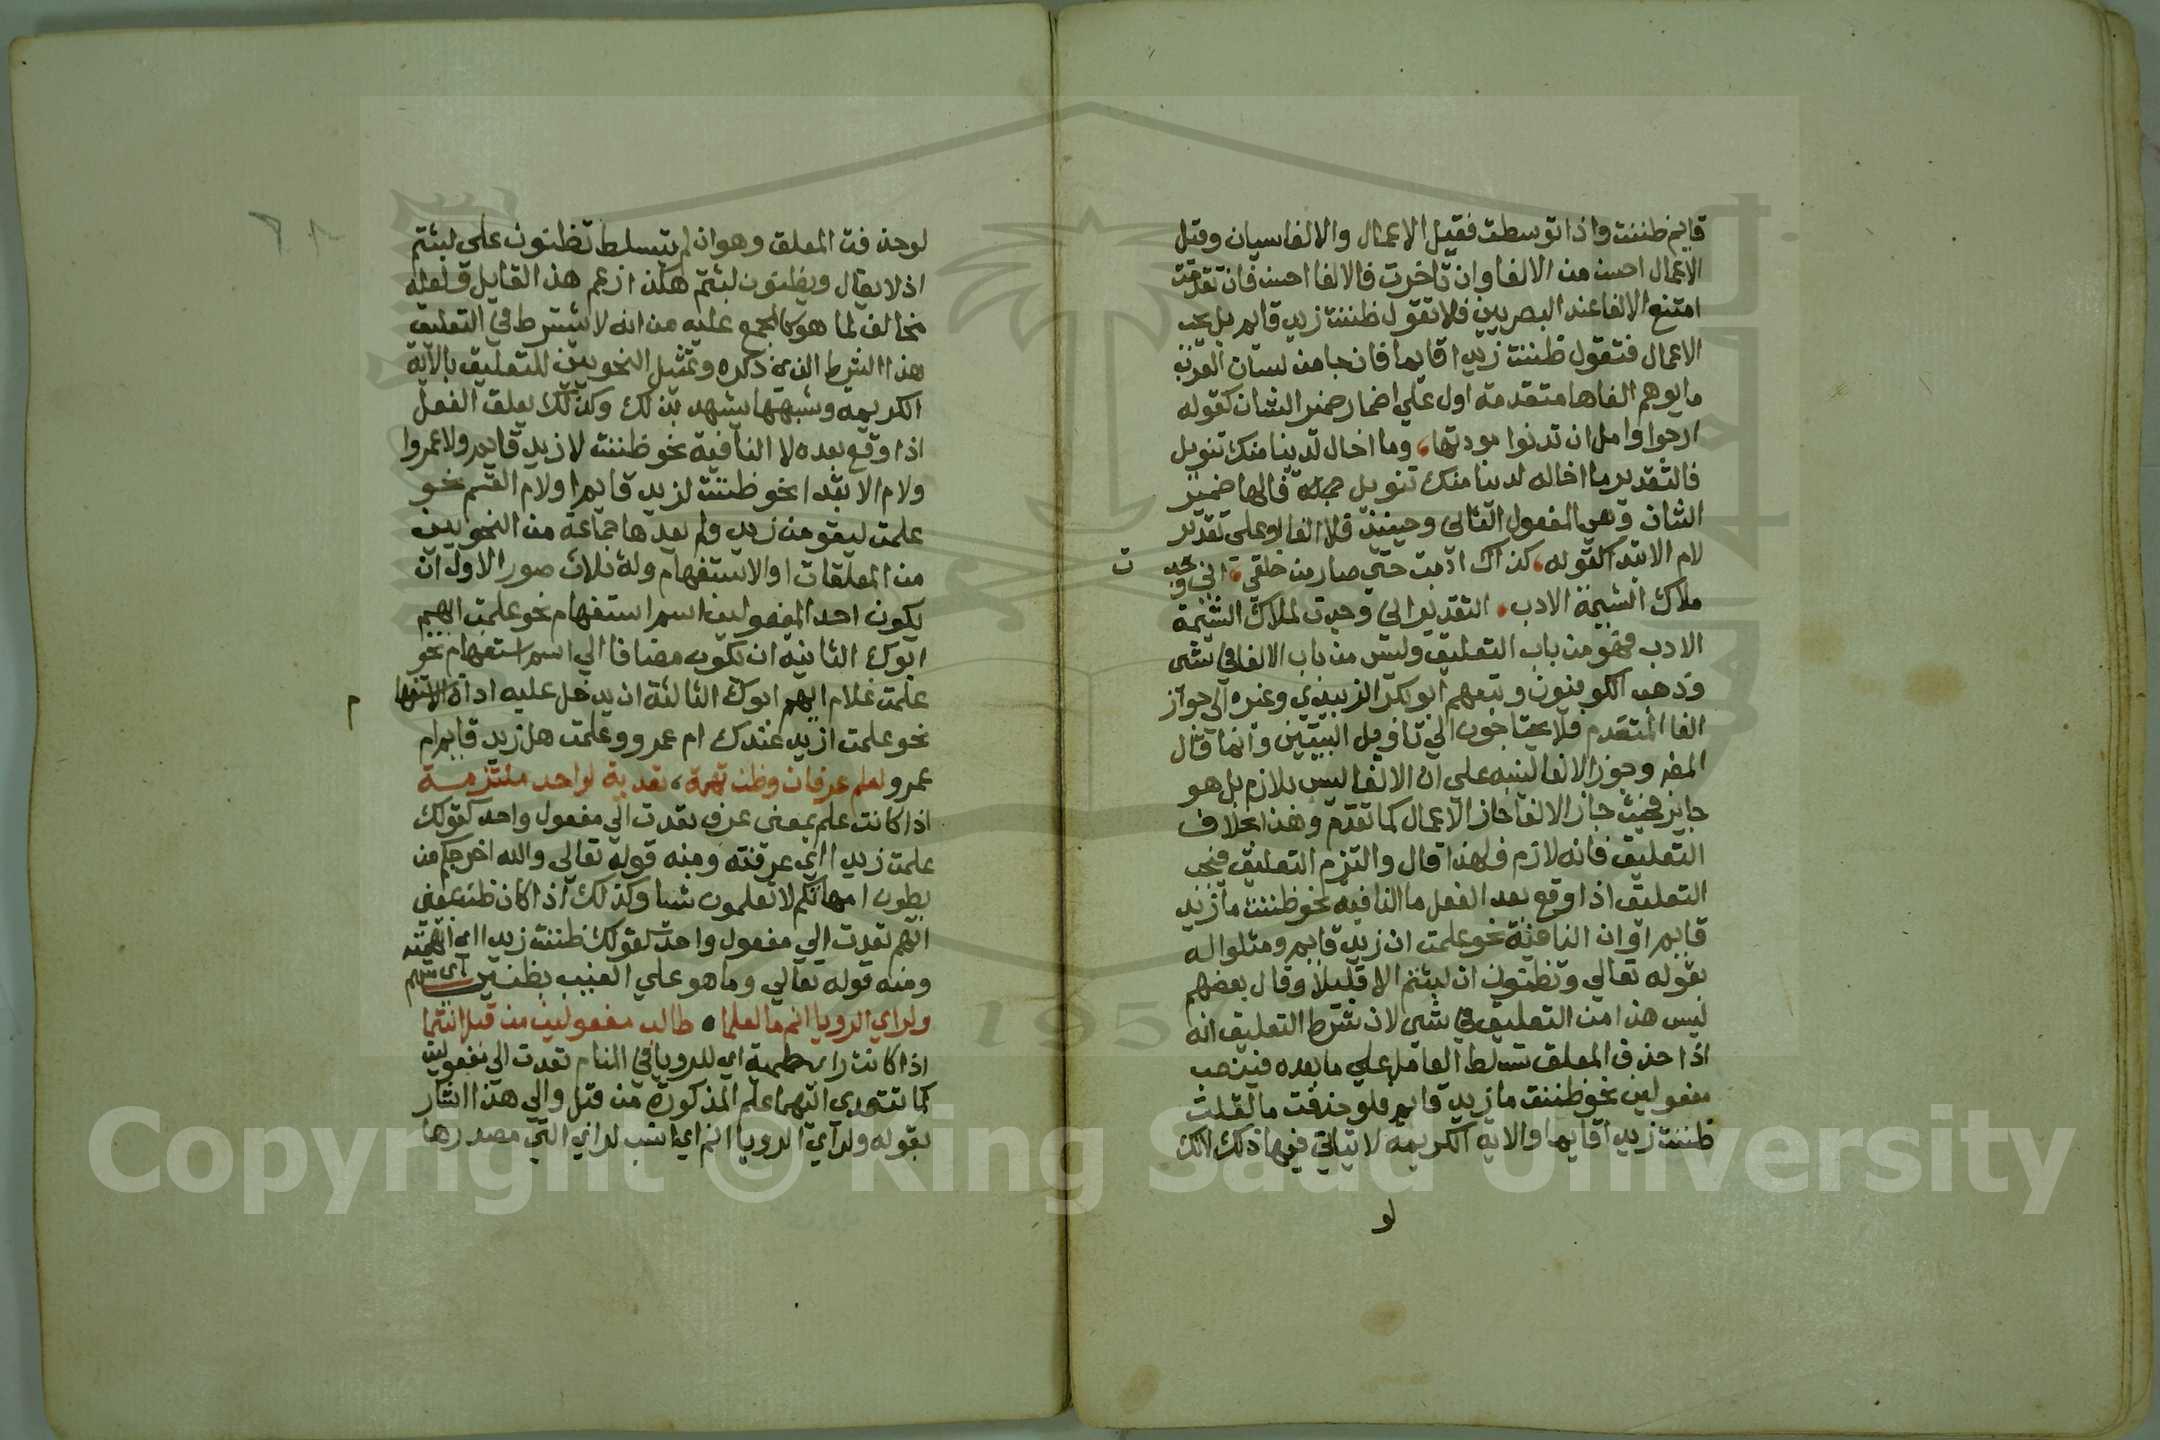 قايم ظننت واذا توسطت فقيل الاعمال والالغا سيان وقيل
الاعمال احسن من الالغا وان تاخرت فالالغا احسن فان تقدمت
امتنع الالغا عند البصريين فلا تقول ظننت زيد قايم بل يجب
الاعمال فتقول ظننت زيدا قايما فان جا من لسان العرب
ما يوهم الغاها متقدمة اول علي اضمار ضمير الشان كقوله
ارجوا وامل ان تدنوا مودتها وما اخال لدينا منك تنويل
فالتقدير ما اخاله لدينا منك تنويل جملة فالها ضمير
الشان وهي المفعول الثاني وحينئذ فلا الغا او علي تقدير
لام الابتدا كقوله كذاك ادبت حتي صار من خلقي اني وجدت
ملاك الشيمة الادب التقدير اني وجدت لملاك الشيمة
الادب فهو من باب التعليق وليس من باب الالغا في شي
وذهب الكوفيون وتبعهم ابو بكر الزبيدي وغيره الي جواز
الغا المتقدم فلا يحتاجون الي تاويل البيتين وانما قال
المص وجوز الالغا لينبه علي ان الالغا ليس بلازم بل هو
جايز فحيث جاز الالغا جاز الاعمال كما تقدم وهذا بخلاف
التعليق فانه لازم فلهذا قال والتزم التعليق فيجب
التعليق اذا وقع بعد الفعل ما النافيه نحو ظننت ما زيد
قايم او ان النافية نحو علمت ان زيد قايم ومثلوا له
بقوله تعالي وتظنون ان لبثتم الا قليلا وقال بعضهم
ليس هذا من التعليق في شي لان شرط التعليق انه
اذا حذف المعلق تسلط العامل علي ما بعده فينصب
مفعولين نحو ظننت ما زيد قايم فلو حذفت ما لقلت
ظننت زيدا قايما والايه الكريمة لا يتاتي فيها ذلك لانك
لو
لو حذفت المعلق وهو ان لم يتسلط تظنون علي لبثتم
اذ لا يقال وتظنون لبثتم هكذا زعم هذا القايل ولعله
مخالف لما هو كالمجمع عليه من انه لا يشترط في التعليق
هذا الشرط الذي ذكره وتمثيل النحويين للتعليق بالاية
الكريمه وشبهها يشهد بذلك وكذلك يعلق الفعل
اذا وقع بعده لا النافية نحو ظننت لا زيد قايم ولا عمروا
ولام الابتدا نحو ظننت لزيد قايم او لام القسم نحو
علمت ليقومن زيد ولم يعدها جماعة من النحويين
من المعلقات او الاستفهام وله ثلاث صور الاول ان
يكون احد المفعولين اسم استفهام نحو علمت ايهم
ابوك الثانيه ان يكون مضافا الي اسم استفهام نحو
علمت غلام ايهم ابوك الثالثة ان يدخل عليه اداة الاستفها
م
نحو علمت ازيد عندك ام عمرو وعلمت هل زيد قايم ام
عمرو لعلم عرفان وظن تهمة، تعدية لواحد ملتزمة
اذا كانت علم بمعني عرف تعدت الي مفعول واحد كقولك
علمت زيدا اي عرفته ومنه قوله تعالي والله اخرجكم من
بطون امهاتكم لا تعلمون شيا وكذلك اذا كان ظن بمعني
اتهم تعدت الي مفعول واحد كقولك ظننت زيدا اي اتهمته
ومنه قوله تعالي وما هو علي الغيب بظنين اي متهم
ولراي الرويا انم ما لعلما طالب مفعولين من قبل انتما
اذا كانت راي حلمية اي للرويا في المنام تعدت الي مفعولين
كما تتعدي اليهما علم المذكورة من قبل والي هذا اشار
بقوله ولراي الرويا انم اي انسب لراي التي مصدرها
Copyright © King Saud University
1957